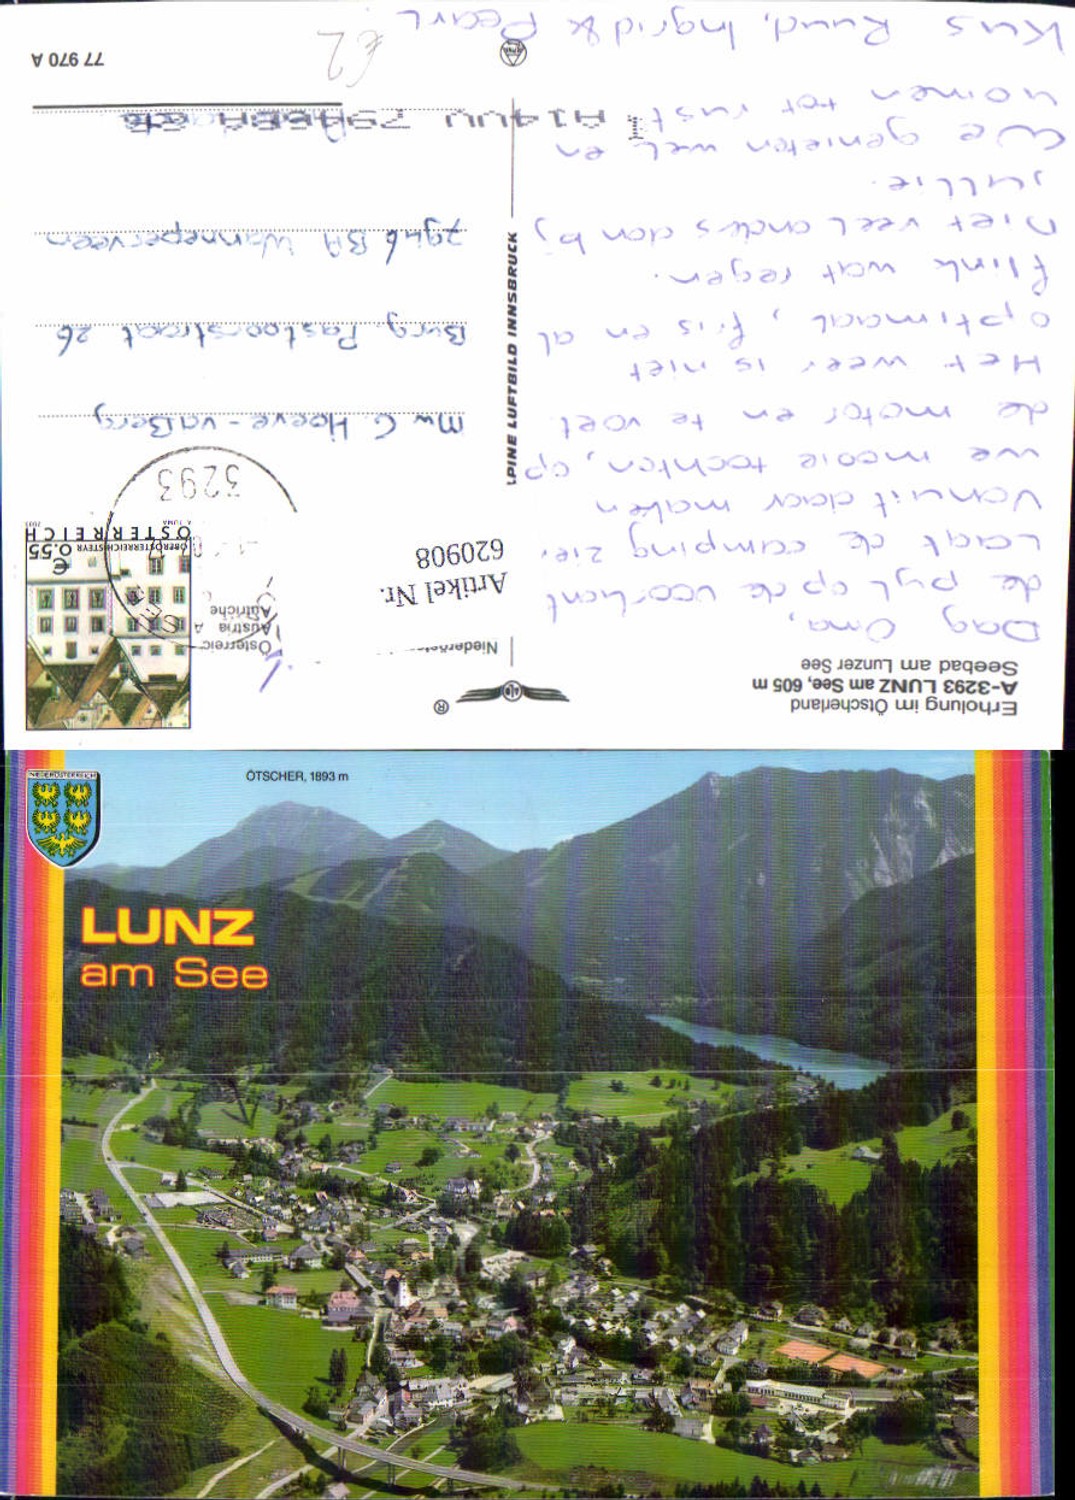 Erholung im Ötscherland
A-3293 LUNZ am See, 605 m
Seebad am Lunzer See
Dag Oma,
de pyl op de voorkant
Laat de camping zien
Vanuit daar maken
we mooie tochten, op
de motor en te voet.
Het weer is niet
optimaal, fris en al
flink wat regen.
Niet veel anders dan bij
jullie.
We genieten wel en
komen tot rust.
Kus Ruud, Ingrid & Pearl.
®
Artikel Nr.
620908
Österreich
Austria
Autriche
€ 0.55
OBERÖSTERREICH STEYR
ÖSTERREICH
A. TUMA 2003
3293
ALPINE LUFTBILD INNSBRUCK
Mw C Hoeve - vdBerg
Burg. Pastoorstraat 26
7946 BA Wanneperveen
€2
77 970 A
NIEDERÖSTERREICH
ÖTSCHER, 1893 m
LUNZ
am See